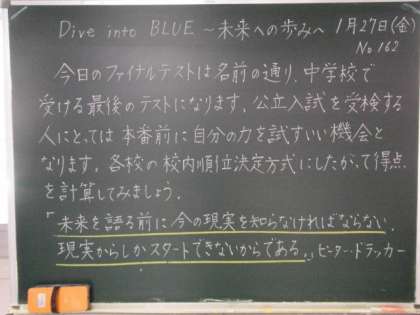 Dive into BLUE ~未来への歩みへ 1月27日(金)
No.162
今日のファイナルテストは名前の通り、中学校で
受ける最後のテストになります。公立入試を受検する
人にとっては本番前に自分の力を試すいい機会と
なります。各校の校内順位決定方式にしたがって得点
を計算してみましょう。
「未来を語る前に今の現実を知らなければならない。
現実からしかスタートできないからである。」ピーター・ドラッカー